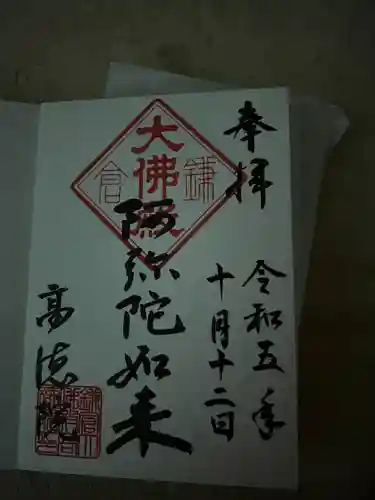 奉拝
令和五年
十月十二日
大佛殿
鎌倉
阿弥陀如来
高徳院